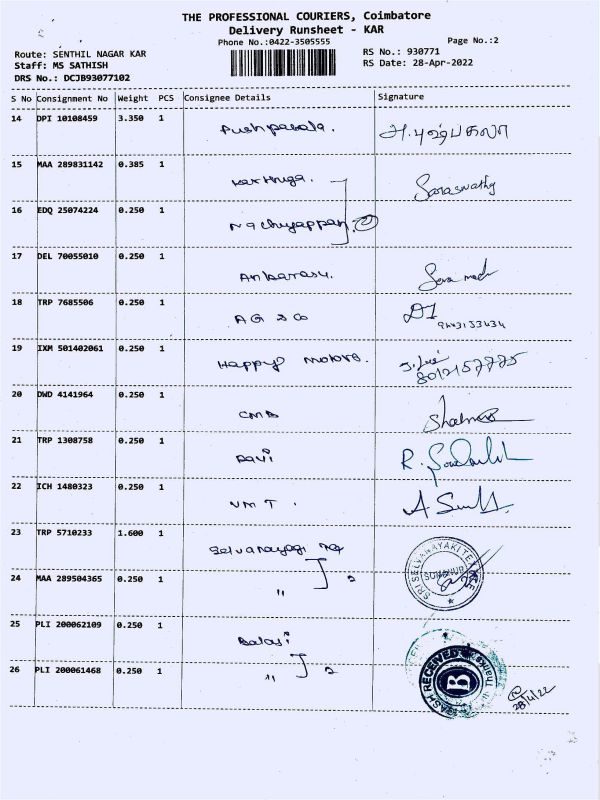 THE PROFESSIONAL COURIERS, Coimbatore
Delivery Runsheet - KAR
Phone No.:0422-3505555 Page No.:2
Route: SENTHIL NAGAR KAR RS No.: 930771
Staff: MS SATHISH RS Date: 28-Apr-2022
DRS No.: DCJB93077102
S No Consignment No Weight PCS Consignee Details Signature
14 DPI 10108459 3.350 1 Pushpakala. அ.புஷ்பகலா
15 MAA 289831142 0.385 1 Karthiga. Saraswathy
16 EDQ 25074224 0.250 1 Nachiyappan 2
17 DEL 70055010 0.250 1 Anbarasu.
18 TRP 7685506 0.250 1 AG & Co
9443133434
19 IXM 501402061 0.250 1 Happy Motors.
8012157775
20 DWD 4141964 0.250 1 CMB
21 TRP 1308758 0.250 1 Ravi R.
22 ICH 1480323 0.250 1 VMT. A
23 TRP 5710233 1.600 1 Selvanayagi SRI SELVANAYAKI
24 MAA 289504365 0.250 1 " 2
25 PLI 200062109 0.250 1 Balaji
26 PLI 200061468 0.250 1 " 2 RECEIVED B
28/4/22